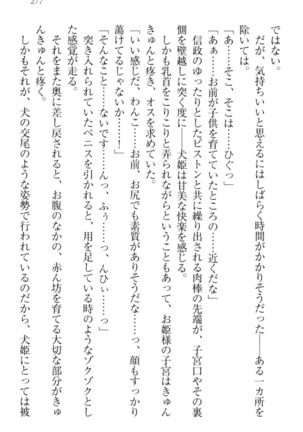 277
ではない。
　だが、気持ちいいと思えるにはしばらく時間がかかりそうだった――ある一カ所を
除いては。
「あ……そこ、そこは……ひぐっ」
「あぁ……お前が子供を育てていたところの……近くだな」
　信政のゆったりとしたピストンと共に繰り出される肉棒の先端が、子宮口やその裏
側を壁越しに突く度に――犬姫は甘美な快楽を感じる。
　しかも乳首をこりこりと弄られながらということもあって、お姫様の子宮はきゅん
きゅんと疼き、オスを求めてしまう。
「いい感じだ、わんこ……お前、お尻でも素質がありそうだな……っ、顔もすっかり
蕩けてるじゃないか……！」
「そんなこと……ですっ……んっ、ふぅ……っ、んひぃ……っ」
　突き入れられていたペニスを引かれると、用を足している時のようなゾクゾクとし
た感覚が走る。
　それをまた奥に差し戻されると、お腹のなかの、赤ん坊を育てる大切な部分がきゅ
んきゅんと疼く。
　しかもそれが、犬の交尾のような姿勢で行われているのだから、犬姫にとっては被